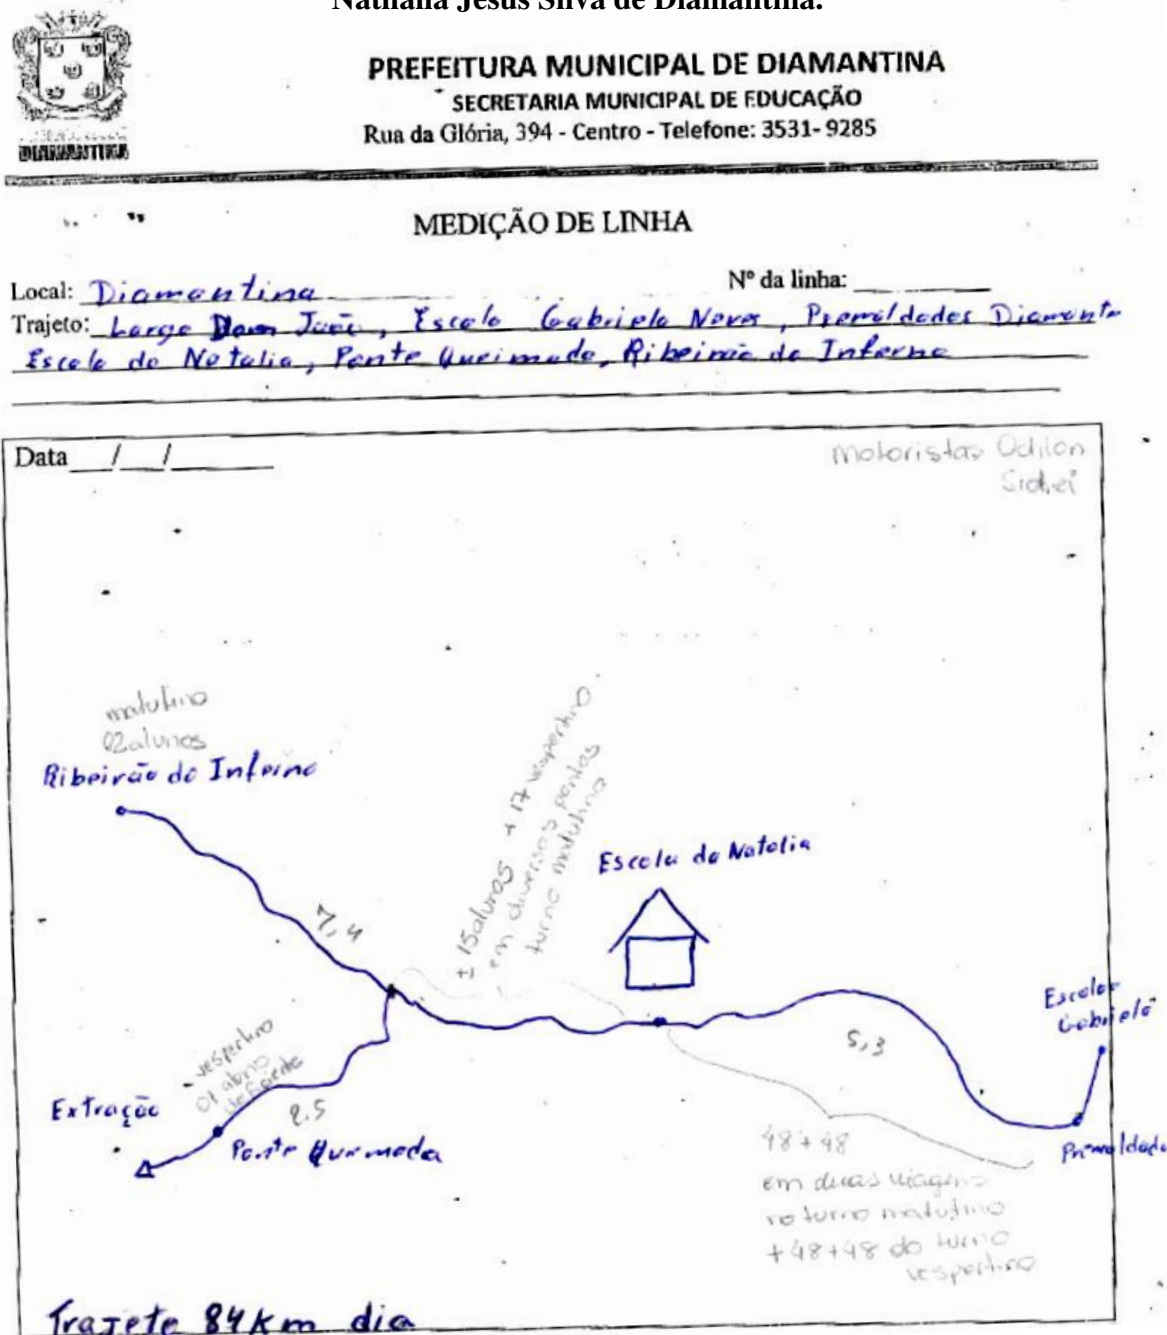 Nathália Jesus Silva de Diamantina.
DIAMANTINA
PREFEITURA MUNICIPAL DE DIAMANTINA
SECRETARIA MUNICIPAL DE EDUCAÇÃO
Rua da Glória, 394 - Centro - Telefone: 3531- 9285
MEDIÇÃO DE LINHA
Local: Diamantina
Nº da linha:
Trajeto: Largo Dom João, Escola Gabriela Neves, Premoldados Diamante
Escola da Natalia, Ponte Queimada, Ribeirão do Inferno
Data __/__/____
motoristas Odilon
Sidnei
matutino
02 alunos
Ribeirão do Inferno
± 15 alunos + 17 vespertino
em diversos pontos
turno matutino
Escola da Natalia
7,4
Escola
Gabriela
5,3
vespertino
01 aluno
Extração
2.5
Ponte Queimada
Premoldado
48 + 48
em duas viagens
no turno matutino
+ 48 + 48 do turno
vespertino
Trajeto 84 Km dia